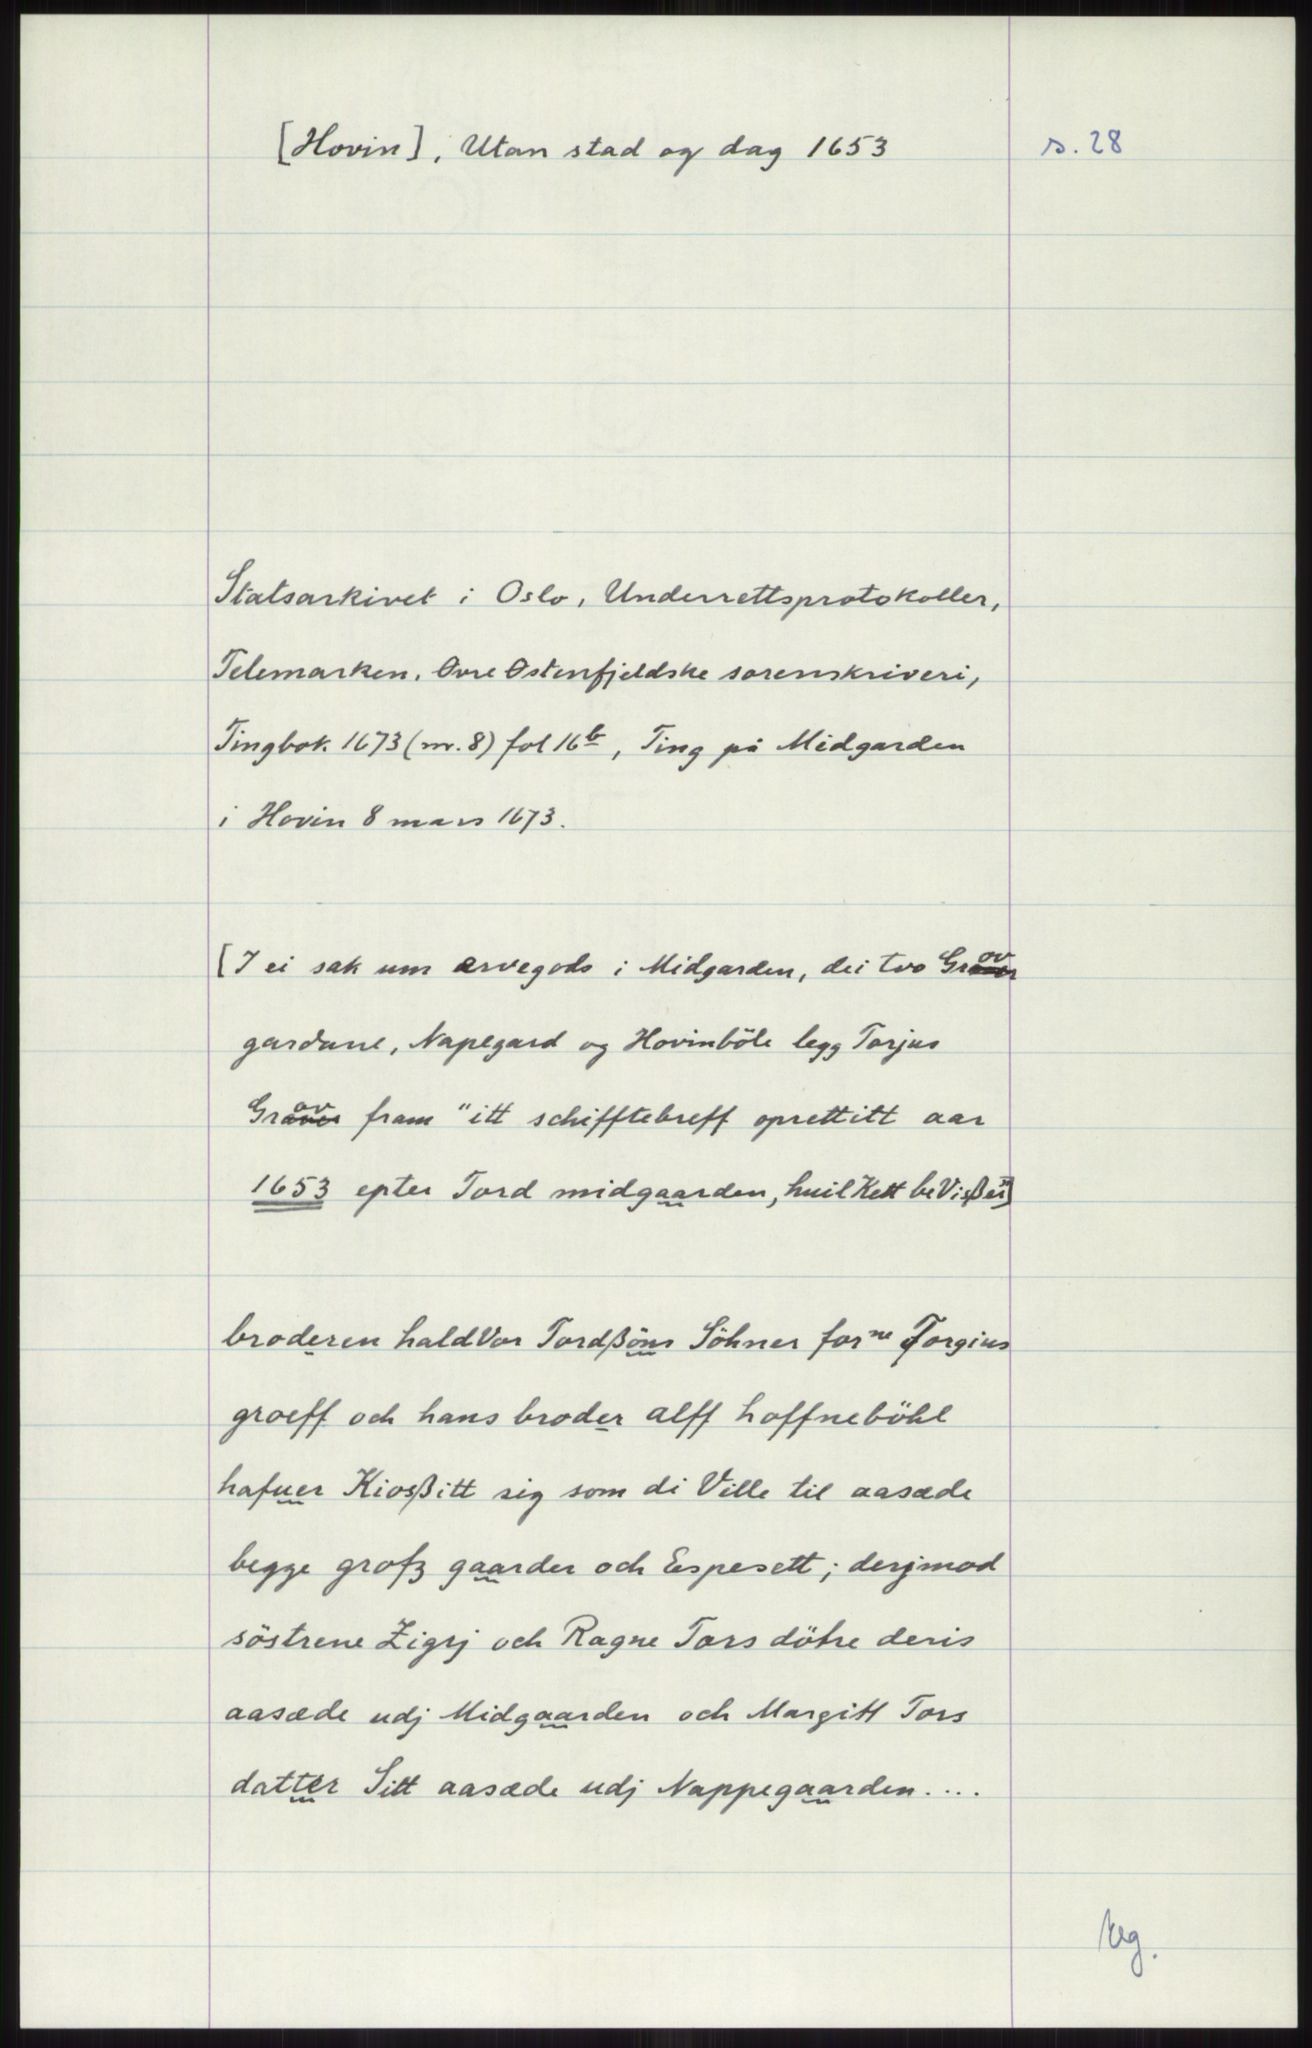 [Hovin], Utan stad og dag 1653
s. 28
Statsarkivet i Oslo, Underrettsprotokoller,
Telemarken, Øvre Østenfjeldske sorenskriveri,
Tingbok 1673 (nr. 8) fol 16b, Ting på Midgarden
i Hovin 8 mars 1673.
[I ei sak um arvegods i Midgarden, dei tvo Grov
gardane, Napegard og Hovinböle legg Torjus
Grov fram "itt schifftebreff oprettitt aar
1653 epter Tord midgaarden, huilKett beVisßer"]
broderen haldVor Tordßöns Söhner forne Torgius
groeff och hans broder alff hoffneböhl
hafuer Kiosßitt sig som di Ville til aasæde
begge grofz gaarder och Espesett; derjmod
söstrene Zigrj och Ragne Tors dötre deris
aasæde udj Midgaarden och Margitt Tors
datter Sitt aasæde udj Nappegaarden....